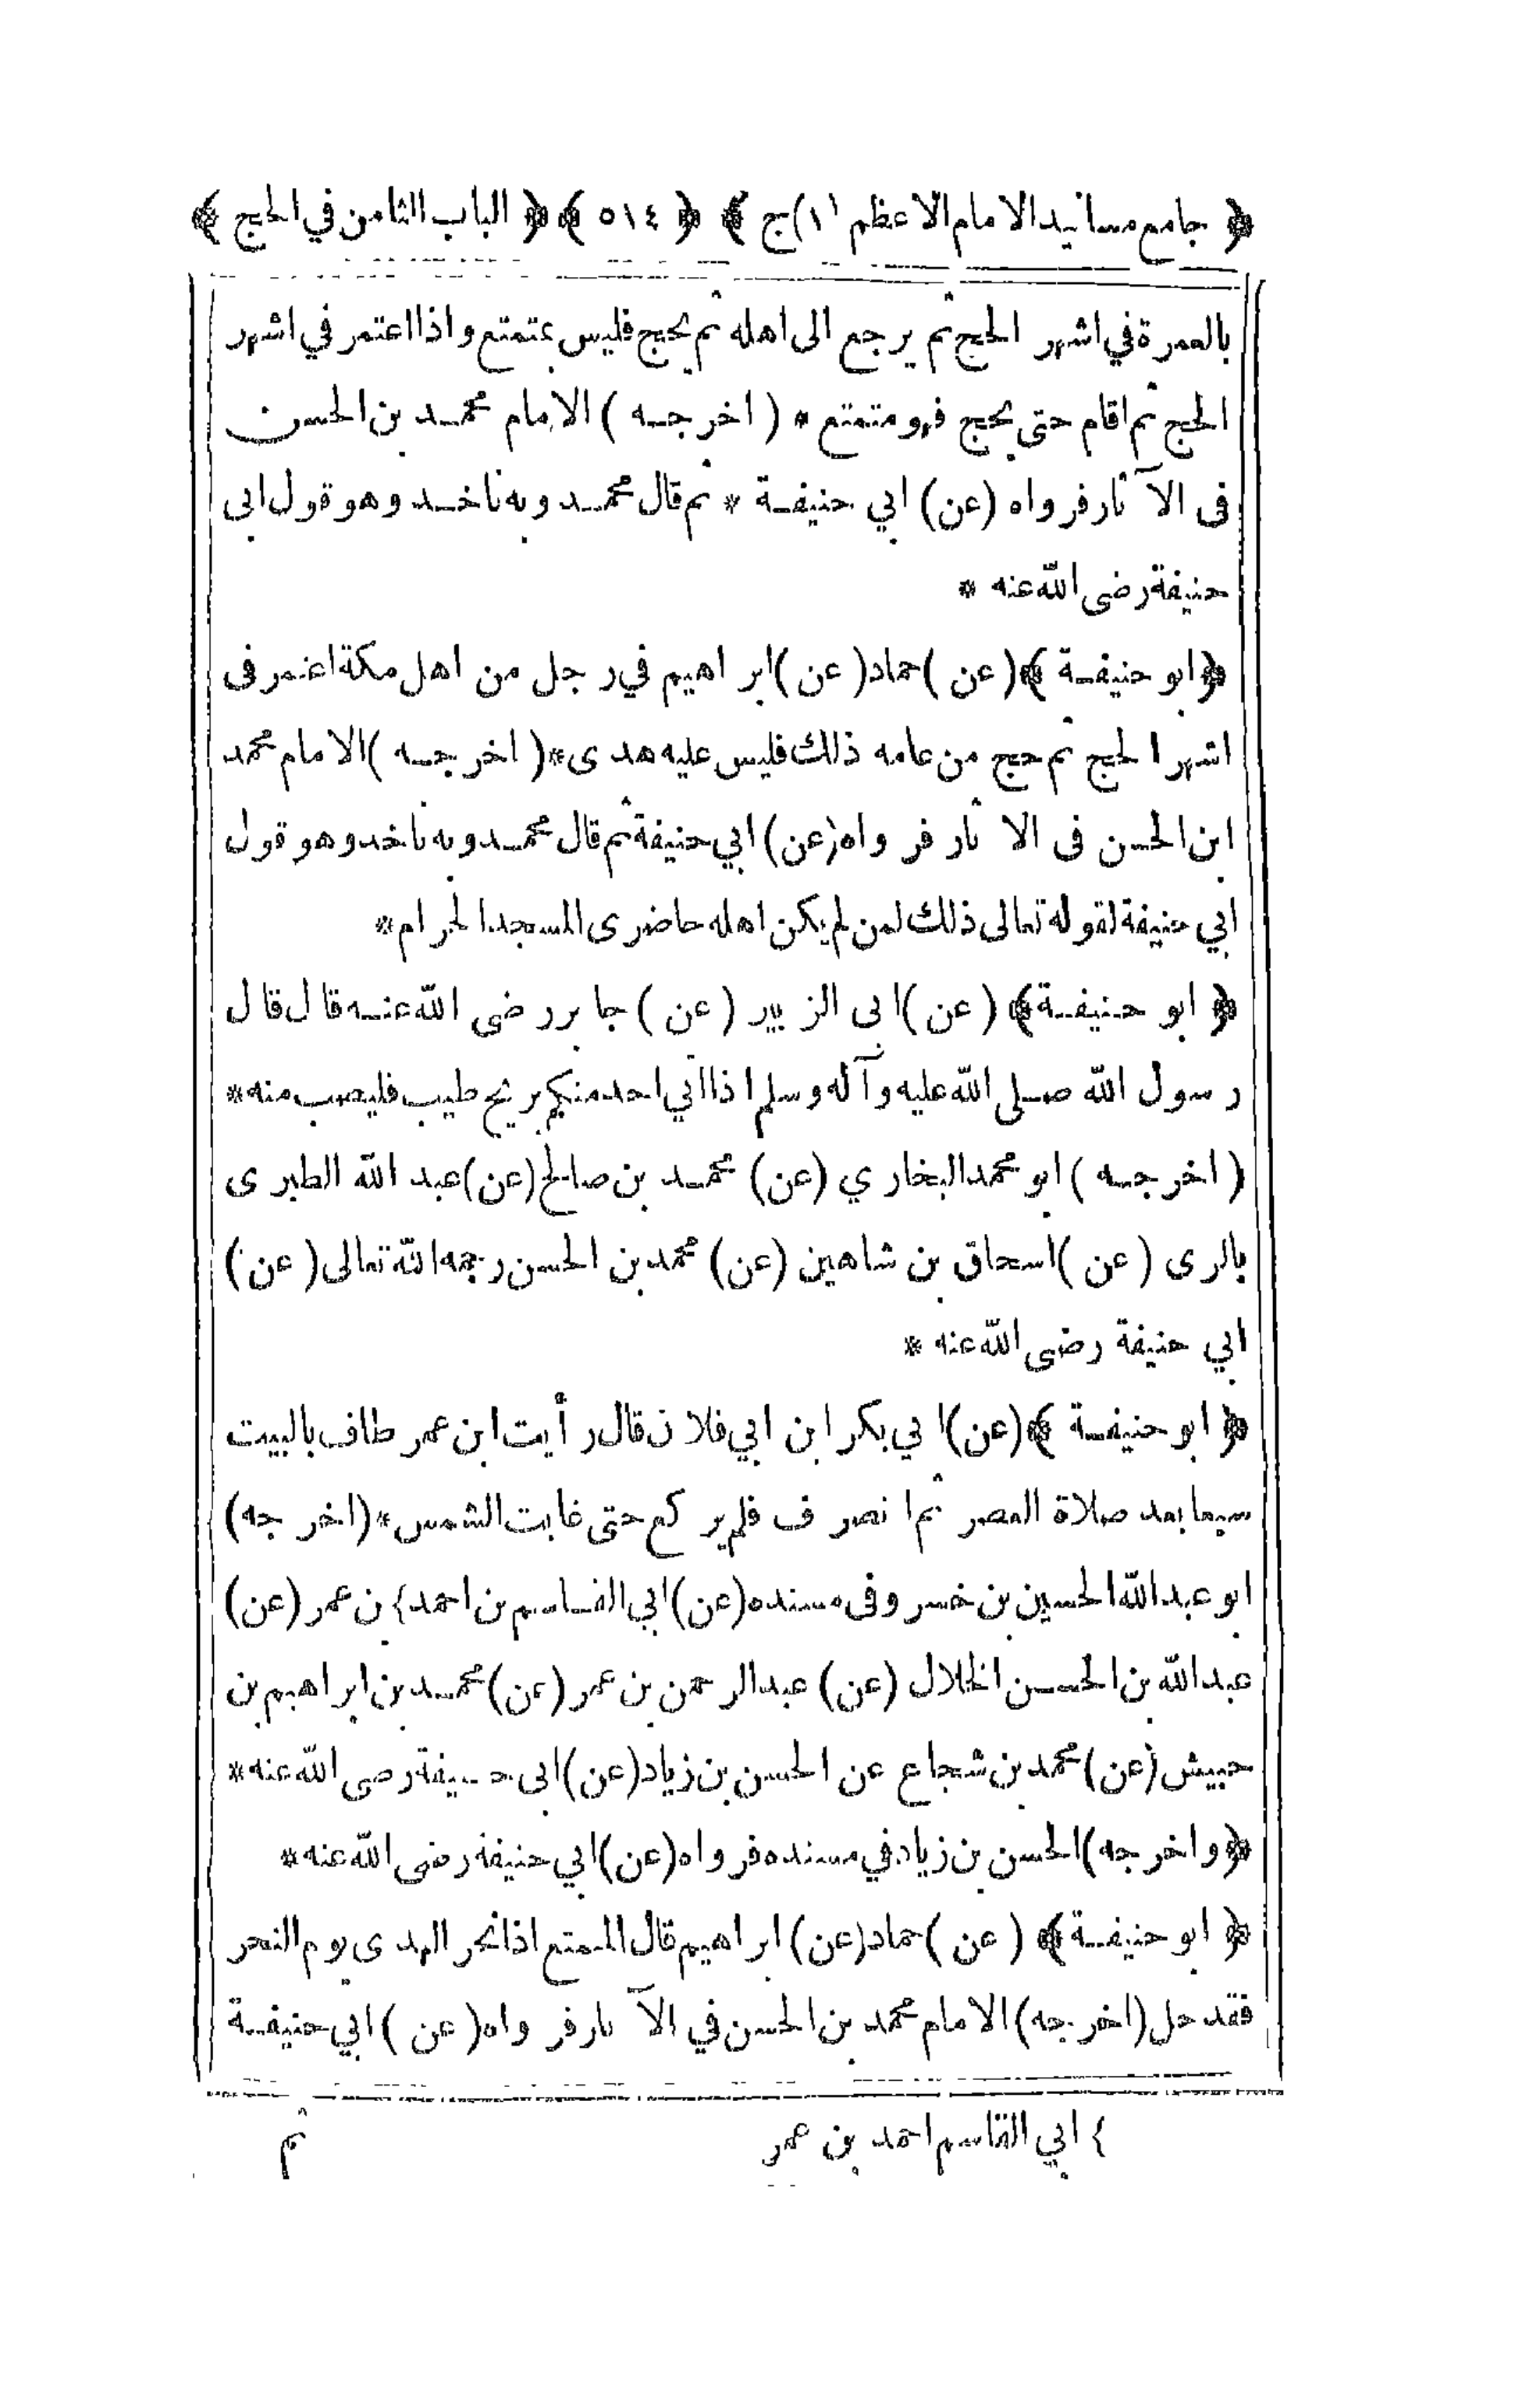 ﴿ جامع مسانيد الامام الاعظم (١)ج ﴾ ﴿ ٥١٤ ﴾ ﴿ الباب الثامن في الحج ﴾
بالعمرة في اشهر الحج ثم يرجع الى اهله ثم يحج فليس بمتمتع واذا اعتمر في اشهر
الحج ثم اقام حتى يحج فهو متمتع * ( اخرجه ) الامام محمد بن الحسن
فى الآثار فرواه (عن) ابي حنيفة * ثم قال محمد وبه ناخذ وهو قول ابى
حنيفة رضى الله عنه *
﴿ابو حنيفة ﴾(عن )حماد(عن )ابراهيم في رجل من اهل مكة اعتمر فى
اشهر الحج ثم حج من عامه ذلك فليس عليه هدى*( اخرجه )الامام محمد
ابن الحسن فى الاثار فرواه(عن) ابي حنيفة ثم قال محمد وبه ناخذ وهو قول
ابي حنيفة لقوله تعالى ذلك لمن لم يكن اهله حاضرى المسجد الحرام*
﴿ ابو حنيفة﴾ (عن )ابى الزبير (عن ) جابر رضى الله عنه قال قال
رسول الله صلى الله عليه وآله وسلم اذا اتي احد منكم بريح طيب فليصب منه*
( اخرجه ) ابو محمد البخاري (عن) محمد بن صالح(عن)عبد الله الطبرى
بالرى (عن )اسحاق بن شاهين (عن) محمد بن الحسن رحمه الله تعالى(عن)
ابي حنيفة رضى الله عنه *
﴿ ابو حنيفة ﴾(عن)ابي بكر ابن ابي فلان قال رأيت ابن عمر طاف بالبيت
سبعا بعد صلاة العصر ثم انصرف فلم يركع حتى غابت الشمس*(اخرجه)
ابو عبد الله الحسين بن خسرو فى مسنده(عن)ابي القاسم بن احمد} بن عمر (عن)
عبد الله بن الحسن الخلال (عن) عبد الرحمن بن عمر (عن)محمد بن ابراهيم بن
حبيش (عن)محمد بن شجاع عن الحسن بن زياد(عن)ابى حنيفة رضى الله عنه*
﴿واخرجه)الحسن بن زياد في مسنده فرواه(عن)ابي حنيفة رضى الله عنه*
﴿ ابو حنيفة﴾ (عن )حماد(عن)ابراهيم قال المتمتع اذا نحر الهدى يوم النحر
فقد حل(اخرجه)الامام محمد بن الحسن في الآثار فرواه(عن )ابي حنيفة
} ابي القاسم احمد بن عمر
ثم